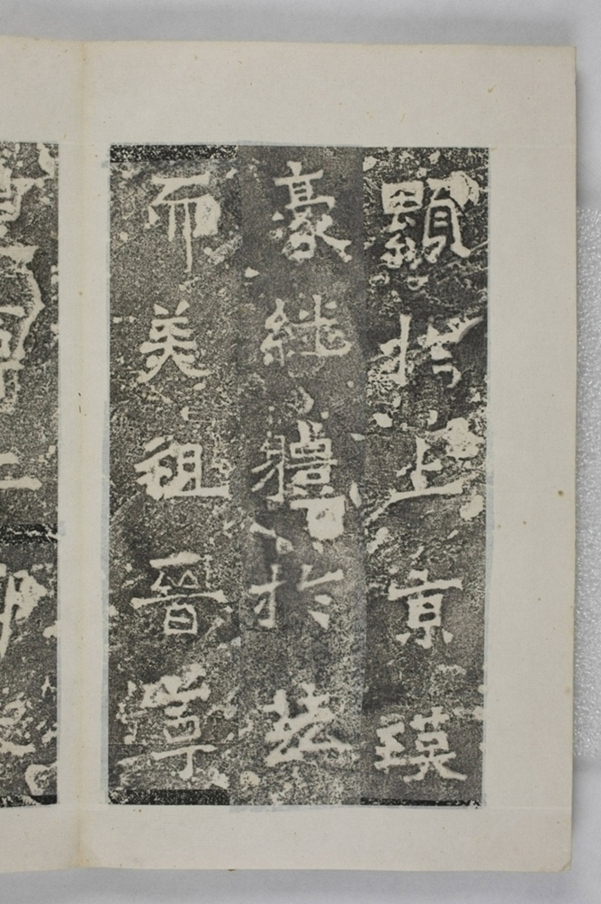 顯於上京瑛
豪継軆於茲
而美祖晉寧